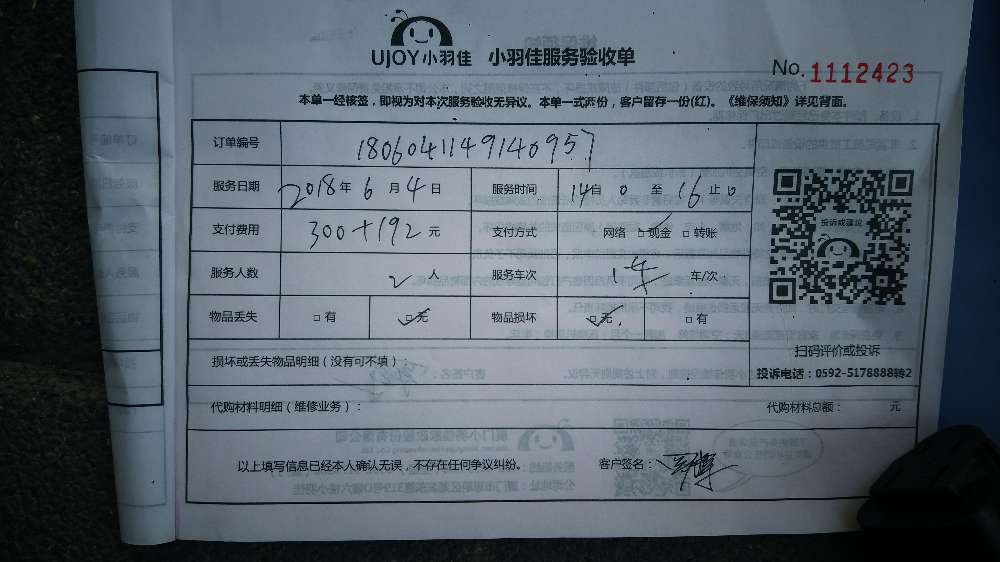 UJOY小羽佳 小羽佳服务验收单
No. 1112423
本单一经核签，即视为对本次服务验收无异议。本单一式两份，客户留存一份(红)。《维保须知》详见背面。
订单编号 1806041149140957
服务日期 2018年6月4日 服务时间 14自0至16止0
支付费用 300+192元 支付方式 网络 □现金 □转账
服务人数 2人 服务车次 1车 车/次
物品丢失 □有 □无 物品损坏 □无 □有
投诉或建议
扫码评价或投诉
损坏或丢失物品明细（没有可不填）：
投诉电话：0592-5178888转2
代购材料明细（维修业务）： 代购材料总额： 元
以上填写信息已经本人确认无误，不存在任何争议纠纷。 客户签名：